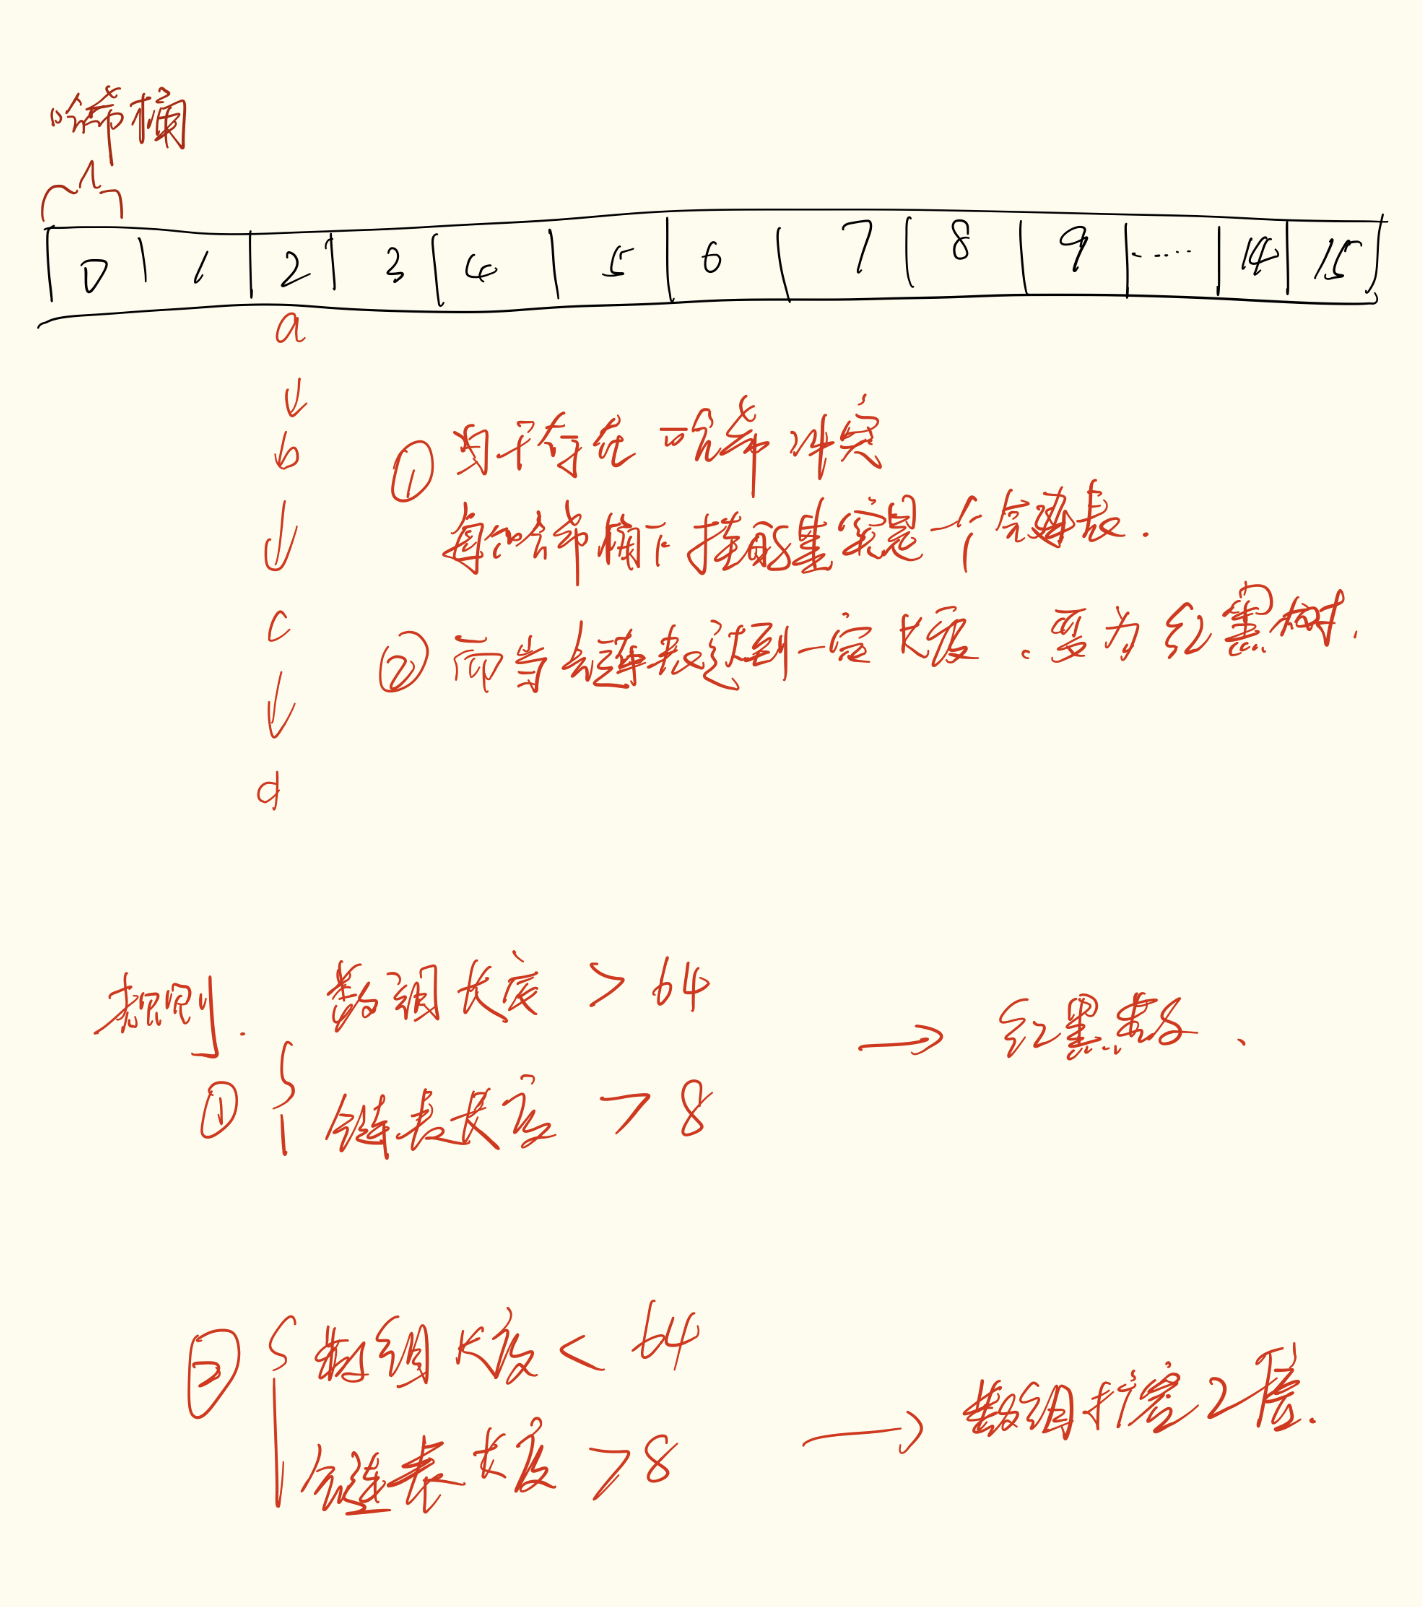 哈希桶
0 1 2 3 4 5 6 7 8 9 ...... 14 15
a
b
c
d
① 由于存在哈希冲突
每个哈希桶下挂的其实是一个链表.
② 而当链表达到一定长度.变为红黑树.
规则.
① 数组长度 > 64
链表长度 > 8
→ 红黑数.
② 数组长度 < 64
链表长度 > 8
→ 数组扩容2倍.